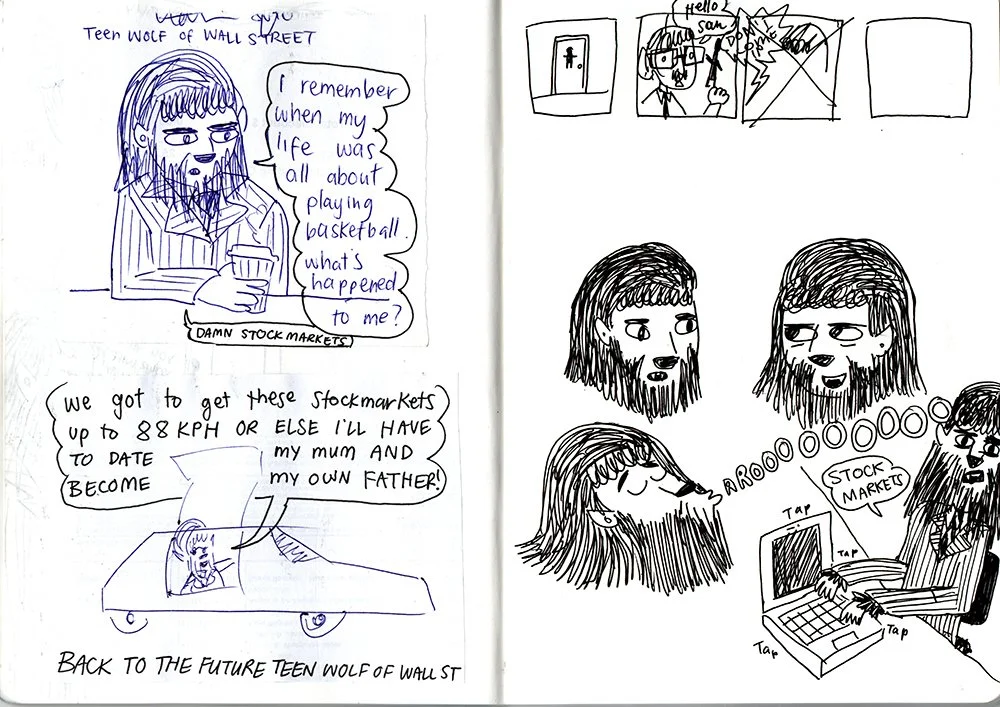 Teen WOLF OF WALL STREET
I remember
when my
life was
all about
playing
basketball.
what's
happened
to me?
DAMN STOCKMARKETS
we got to get these stockmarkets
up to 88 KPH OR ELSE I'LL HAVE
TO DATE my mum AND
BECOME my OWN FATHER!
BACK TO THE FUTURE TEEN WOLF OF WALL ST
Hello?
San
AROOOOOOOOO
STOCK
MARKETS
Tap
Tap
Tap
Tap